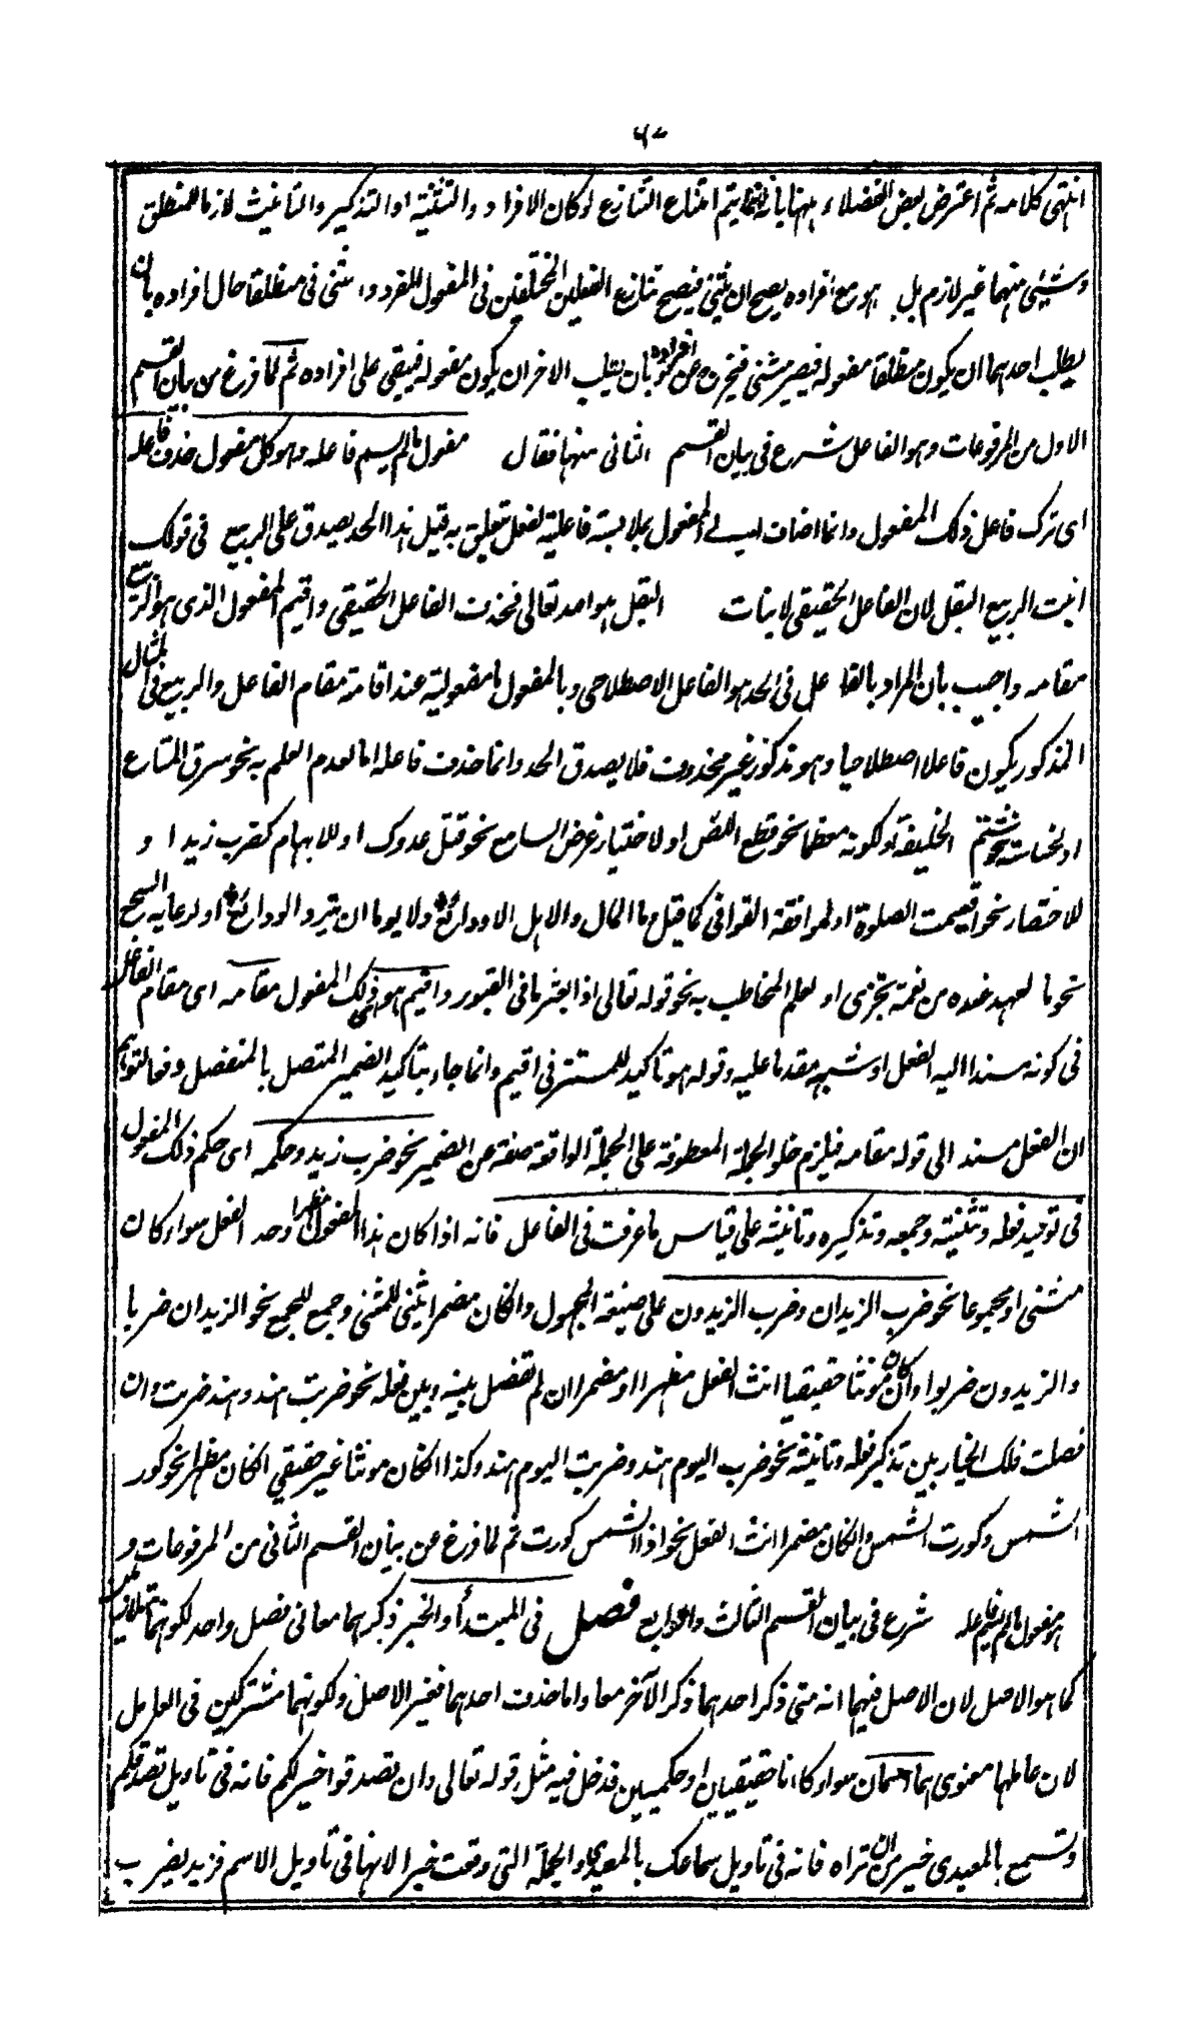 ٦٠
انتهى كلامه ثم اعترض بعض الفضلاء ههنا بانه انما يتم امتناع التنازع لو كان الافراد والتثنية او التذكير والتانيث لازما لمنطلق
وشيئ منهما غير لازم بل هو مع افراده يصح ان يثنى فيصح تنازع الفعلين المختلفين فى المفعول للمفرد والمثنى فى منطلقا حال افراده بان
يطلب احدهما ان يكون منطلقا مفعوله فيصير مثنى فيخرج عن افراده بان يطلب الاخر ان يكون مفعوله فيبقى على افراده ثم لما فرغ من بيان القسم
الاول من المرفوعات وهو الفاعل شرع فى بيان القسم الثانى منها فقال مفعول ما لم يسم فاعله وهو كل مفعول حذف فاعله
اى ترك فاعل ذلك المفعول وانما اضاف اليه المفعول بملابسة فاعلية لفعل تعلق به قيل هذا الحد يصدق على الربيع فى قولك
انبت الربيع البقل لان الفاعل الحقيقى لانبات البقل هو الله تعالى فحذف الفاعل الحقيقى واقيم المفعول الذى هو الربيع
مقامه واجيب بان المراد بالفاعل فى الحد هو الفاعل الاصطلاحى وبالمفعول ما مفعولية عند اقامته مقام الفاعل والربيع فى المثال
المذكور يكون فاعلا اصطلاحيا وهو مذكور غير محذوف فلا يصدق الحد وانما حذف فاعله اما لعدم العلم به نحو سرق المتاع
او لخساسته نحو شتم الخليفة او لكونه معظما نحو قطع اللص او لاختيار غرض السامع نحو قتل عدوك او للابهام كضرب زيد او
للاختصار نحو اقيمت الصلوة او لموافقة القوافى كما قيل وما المال والاهل الا ودائع ولا يوما ان ترد الودائع او لرعاية السجع
نحو ما لعهد عنده من نعمة تجزى او لعلم المخاطب به نحو قوله تعالى اذا بعثر ما فى القبور واقيم هو اى ذلك المفعول مقامه اى مقام الفاعل
فى كونه مسندا اليه الفعل او شبهه مقدما عليه وقوله هو تاكيد للمستتر فى اقيم وانما جاء بتاكيد الضمير المتصل بالمنفصل دفعا لتوهم
ان الفعل مسند الى قوله مقامه فيلزم خلو الجملة المعطوفة على الجملة الواقعة صفة عن الضمير نحو ضرب زيد وحكمه اى حكم ذلك المفعول
فى توحيد فعله وتثنيته وجمعه وتذكيره وتانيثه على قياس ما عرفت فى الفاعل فانه اذا كان هذا المفعول مظهرا وحد الفعل سواء كان
مثنى او مجموعا نحو ضرب الزيدان وضرب الزيدون على صيغة المجهول وان كان مضمرا يثنى للمثنى وجمع للجمع نحو الزيدان ضربا
والزيدون ضربوا وان كان مؤنثا حقيقيا انث الفعل مظهرا او مضمرا ان لم تفصل بينه وبين فعله نحو ضربت هند وهند ضربت وان
فصلت فلك الخيار بين تذكير فعله وتانيثه نحو ضرب اليوم هند وضربت اليوم هند وكذا ان كان مونثا غير حقيقى ان كان مظهرا نحو كور
الشمس وكورت الشمس وان كان مضمرا انث الفعل نحو اذا الشمس كورت ثم لما فرغ عن بيان القسم الثانى من المرفوعات و
هو مفعول ما لم يسم فاعله شرع فى بيان القسم الثالث والرابع فصل فى المبتدأ والخبر ذكرهما معا فى فصل واحد لكونهما متلازمين
كما هو الاصل لان الاصل فيهما انه متى ذكر احدهما ذكر الآخر معا واما حذف احدهما فغير الاصل ولكونهما مشتركين فى العامل
لان عاملهما معنوى هما اسمان سواء كانا حقيقيان او حكميين فدخل فيه مثل قوله تعالى وان تصدقوا خير لكم فانه فى تاويل تصدقكم
وتسمع بالمعيدى خير من ان تراه فانه فى تاويل سماعك بالمعيدى والجملة التى وقعت خبرا لانها فى تاويل الاسم فزيد يضرب